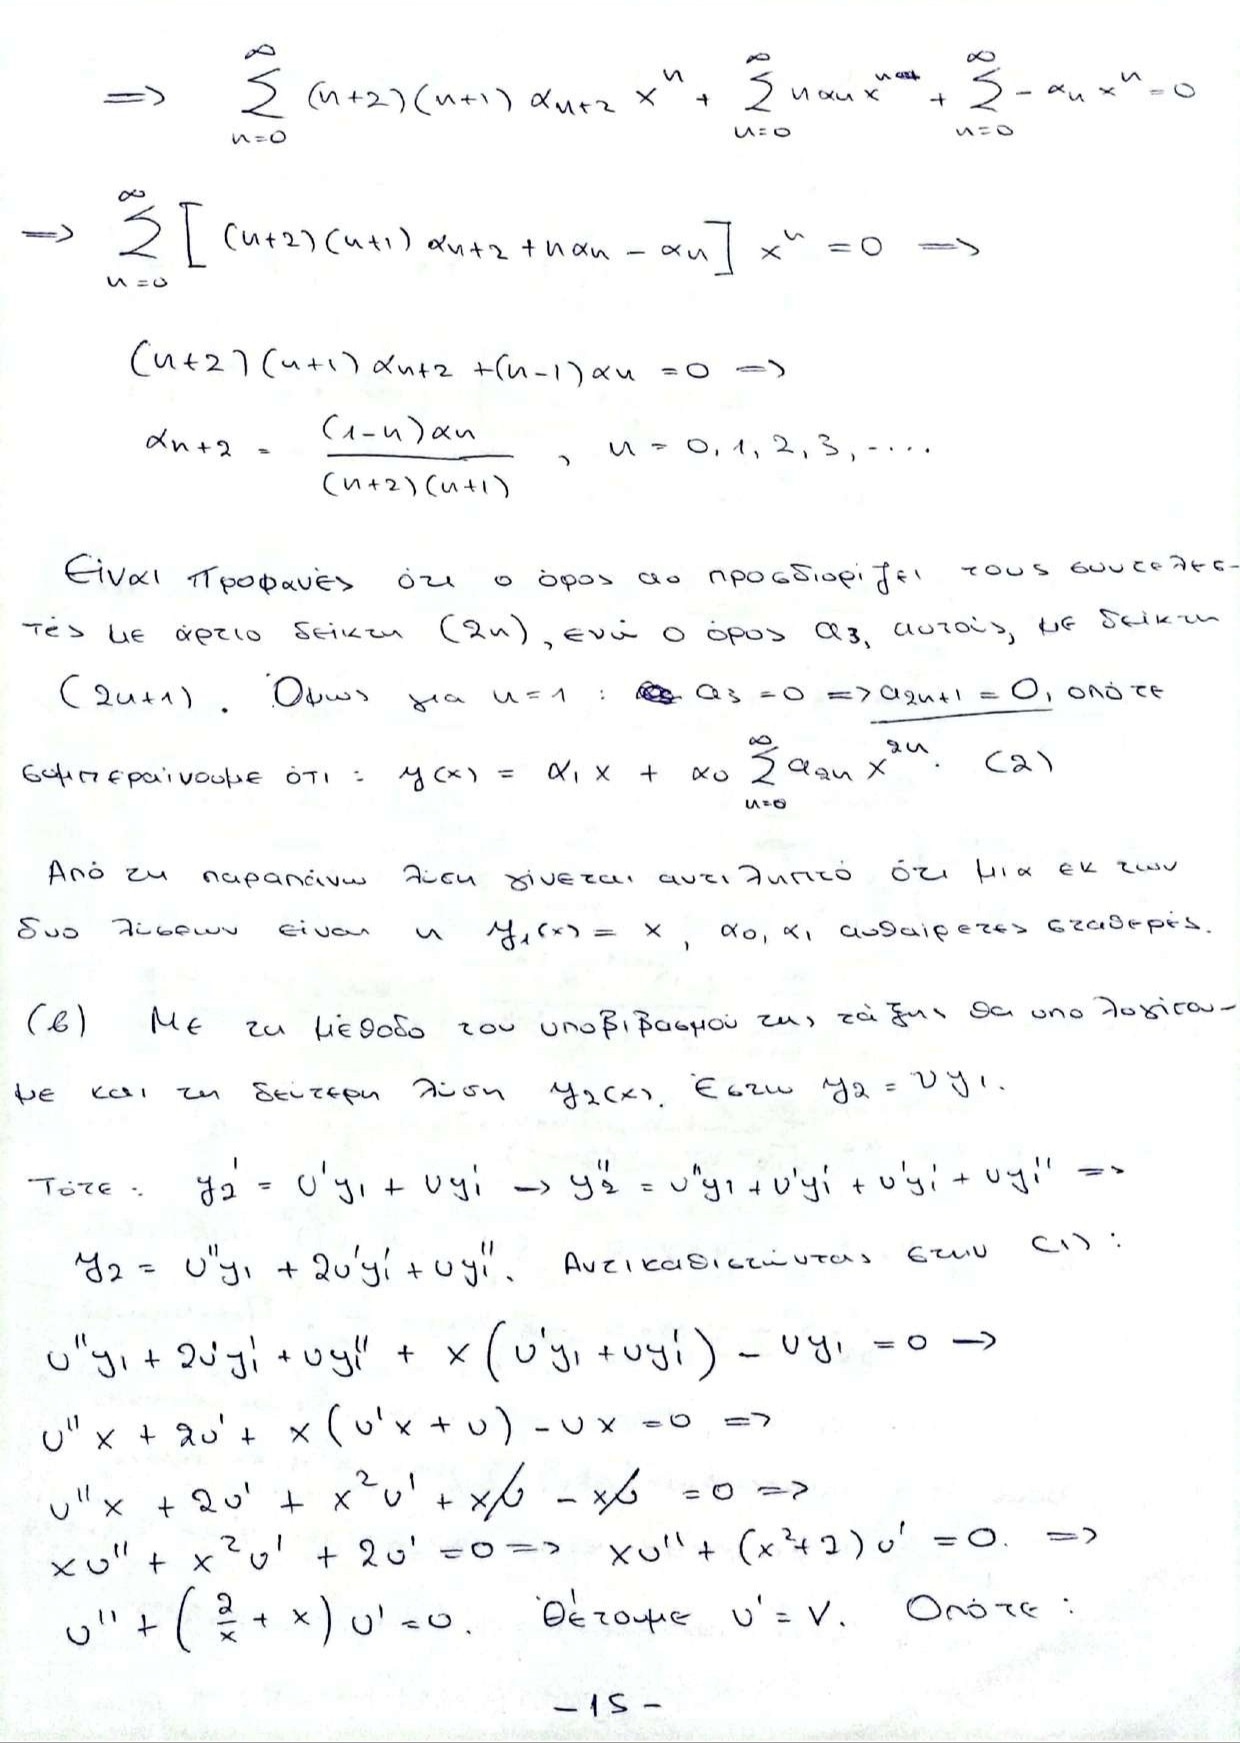 => ∞Σn=0 (n+2)(n+1) αn+2 x^n + ∞Σn=0 n αn x^n + ∞Σn=0 - αn x^n = 0
=> ∞Σn=0 [ (n+2)(n+1) αn+2 + n αn - αn ] x^n = 0 =>
(n+2)(n+1) αn+2 + (n-1) αn = 0 =>
αn+2 = (1-n) αn / (n+2)(n+1) , n = 0, 1, 2, 3, ....
Είναι προφανές ότι ο όρος αο προσδιορίζει τους συντελεσ-
τές με άρτιο δείκτη (2n), ενώ ο όρος α3, αυτούς, με δείκτη
(2n+1). Όμως για n=1 : α3 = 0 => α2n+1 = 0, οπότε
συμπεραίνουμε ότι : y(x) = α1 x + α0 ∞Σn=0 α2n x^2n. (2)
Από τη παραπάνω λύση γίνεται αντιληπτό ότι μια εκ των
δυο λύσεων είναι η y1(x) = x, α0, α1 αυθαίρετες σταθερές.
(β) Με τη μέθοδο του υποβιβασμού της τάξης θα υπολογίσου-
με και τη δεύτερη λύση y2(x). Έστω y2 = υy1.
Τότε : y2' = υ'y1 + υy1' -> y2'' = υ''y1 + υ'y1' + υ'y1' + υy1'' =>
y2 = υ''y1 + 2υ'y1' + υy1''. Αντικαθιστώντας στην (1) :
υ''y1 + 2υ'y1' + υy1'' + x(υ'y1 + υy1') - υy1 = 0 ->
υ''x + 2υ' + x(υ'x + υ) - υx = 0 =>
υ''x + 2υ' + x²υ' + xυ - xυ = 0 =>
xυ'' + x²υ' + 2υ' = 0 => xυ'' + (x²+2)υ' = 0. =>
υ'' + (2/x + x) υ' = 0. Θέτουμε υ' = V. Οπότε :
-15-